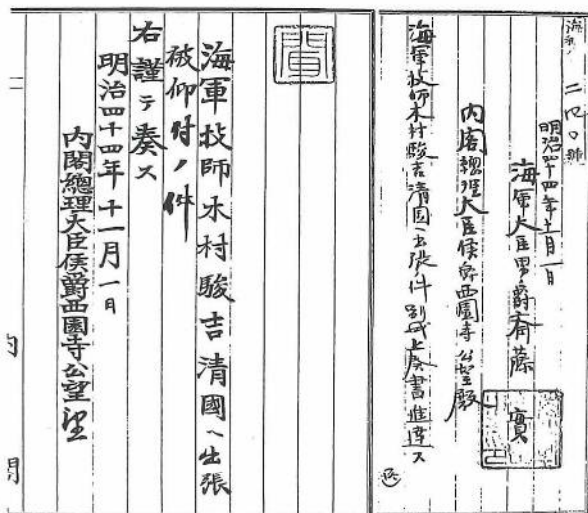 海軍 二四〇號
明治四十四年十一月一日
海軍大臣男爵斎藤實
内閣總理大臣侯爵西園寺公望殿
海軍技師木村駿吉清國ヘ出張件別紙上奏書進達ス
聞
海軍技師木村駿吉清國ヘ出張
被仰付ノ件
右謹テ奏ス
明治四十四年十一月一日
内閣總理大臣侯爵西園寺公望
内閣